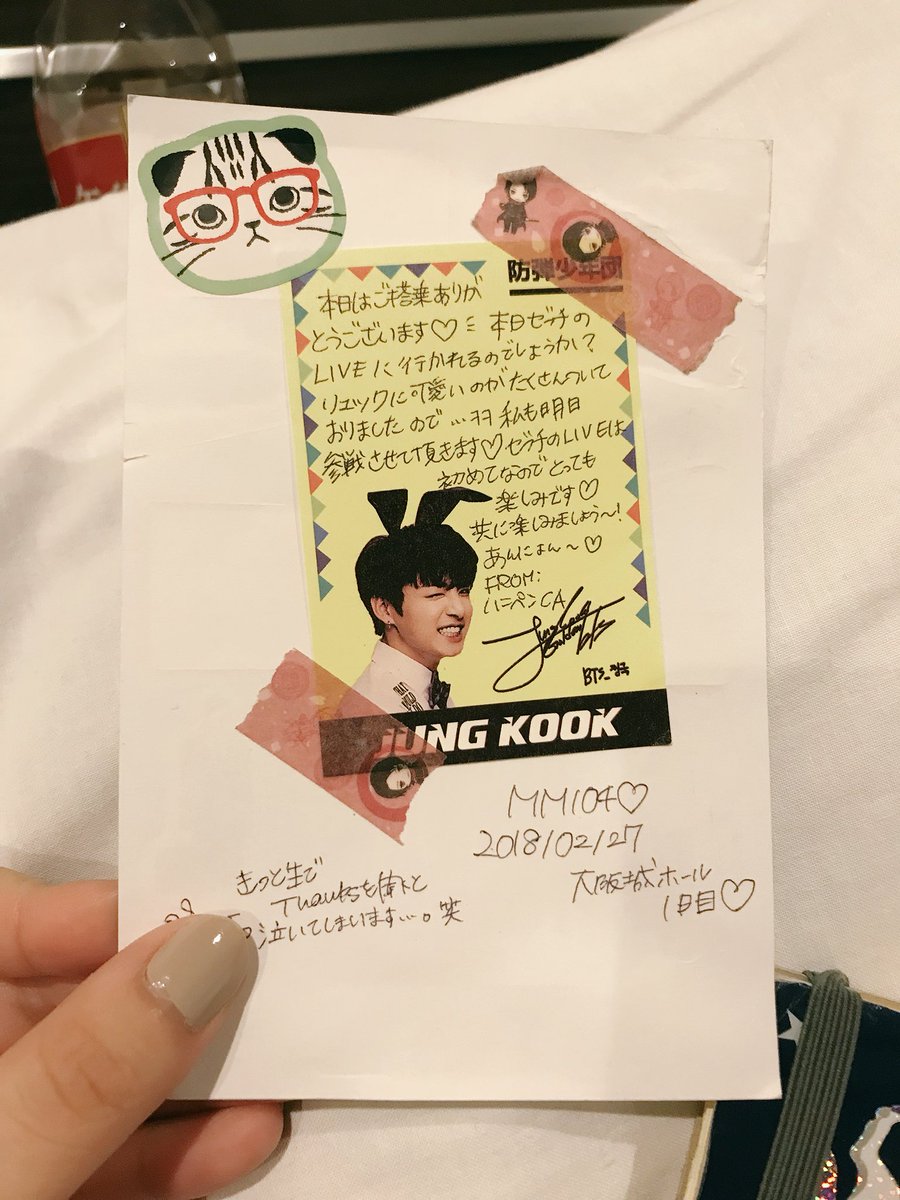 防弾少年団
本日はご搭乗ありが
とうございます♡ 本日ゼブチの
LIVEに行かれるのでしょうか?
リュックに可愛いのがたくさんついて
おりましたので…ヲヲ 私も明日
参戦させて頂きます♡ゼブチのLIVEは
初めてなのでとっても
楽しみです♡
共に楽しみましょう〜!
あんにょん〜♡
FROM:
ハニペンCA
BTS_정국
JUNG KOOK
MM104♡
2018/02/27
大阪城ホール
1日目♡
きっと生で
Thanksを聞くと
泣いてしまいます…。笑